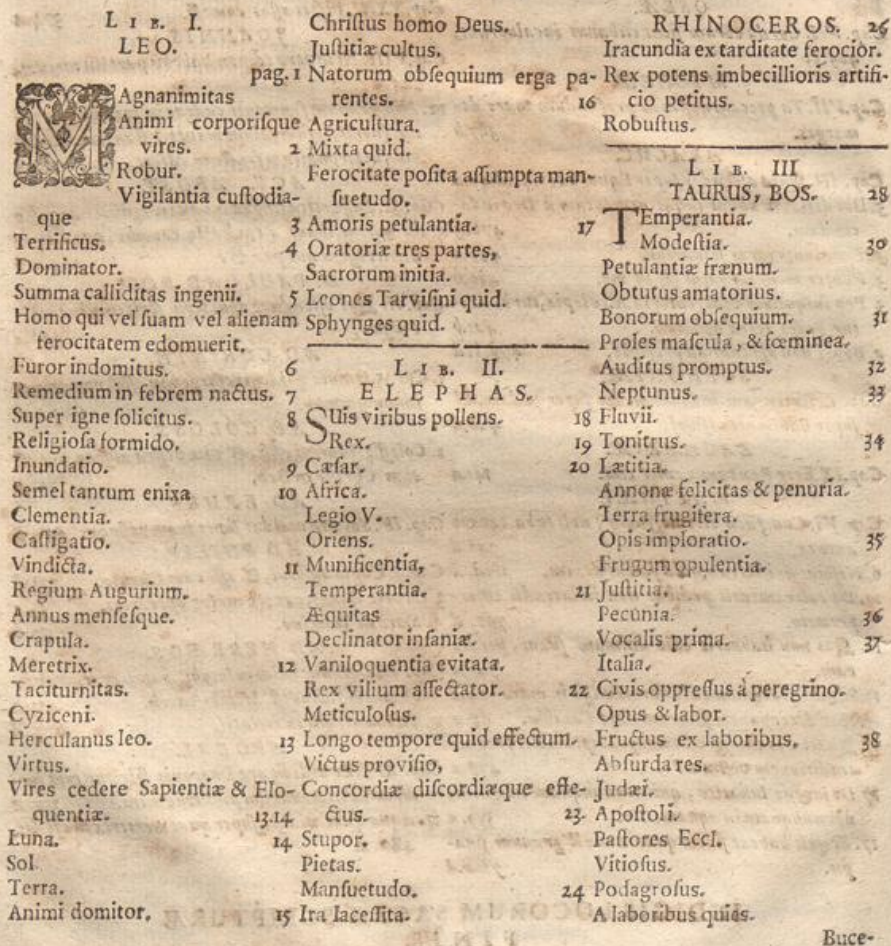 LIB. I.
LEO.
pag. 1
MAgnanimitas
Animi corporiſque
vires. 2
Robur.
Vigilantia cuſtodia-
que 3
Terrificus. 4
Dominator.
Summa calliditas ingenii. 5
Homo qui vel ſuam vel alienam
ferocitatem edomuerit.
Furor indomitus. 6
Remedium in febrem nactus. 7
Super igne ſolicitus. 8
Religioſa formido.
Inundatio. 9
Semel tantum enixa 10
Clementia.
Caſtigatio.
Vindicta. 11
Regium Augurium.
Annus menſeſque.
Crapula.
Meretrix. 12
Taciturnitas.
Cyziceni.
Herculanus leo. 13
Virtus.
Vires cedere Sapientiæ & Elo-
quentiæ. 13.14
Luna. 14
Sol
Terra.
Animi domitor. 15
Chriſtus homo Deus.
Juſtitiæ cultus.
Natorum obſequium erga pa-
rentes. 16
Agricultura.
Mixta quid.
Ferocitate poſita aſſumpta man-
ſuetudo.
Amoris petulantia. 17
Oratoriæ tres partes,
Sacrorum initia.
Leones Tarviſini quid.
Sphynges quid.
LIB. II.
ELEPHAS.
SUis viribus pollens. 18
Rex. 19
Cæſar. 20
Africa.
Legio V.
Oriens.
Munificentia,
Temperantia. 21
Æquitas
Declinator inſaniæ.
Vaniloquentia evitata.
Rex vilium aſſectator. 22
Meticuloſus.
Longo tempore quid effectum.
Victus proviſio,
Concordiæ diſcordiæque effe-
ctus. 23.
Stupor.
Pietas.
Manſuetudo. 24
Ira laceſſita.
RHINOCEROS. 26
Iracundia ex tarditate ferocior.
Rex potens imbecillioris artifi-
cio petitus.
Robuſtus.
LIB. III
TAURUS, BOS. 28
TEmperantia.
Modeſtia. 30
Petulantiæ frænum.
Obtutus amatorius.
Bonorum obſequium. 31
Proles maſcula, & fœminea.
Auditus promptus. 32
Neptunus. 33
Fluvii.
Tonitrus. 34
Lætitia.
Annonæ felicitas & penuria.
Terra frugifera.
Opis imploratio. 35
Frugum opulentia.
Juſtitia.
Pecunia. 36
Vocalis prima. 37
Italia.
Civis oppreſſus à peregrino.
Opus & labor.
Fructus ex laboribus. 38
Abſurda res.
Judæi.
Apoſtoli.
Paſtores Eccl.
Vitioſus.
Podagroſus.
A laboribus quies.
Buce-